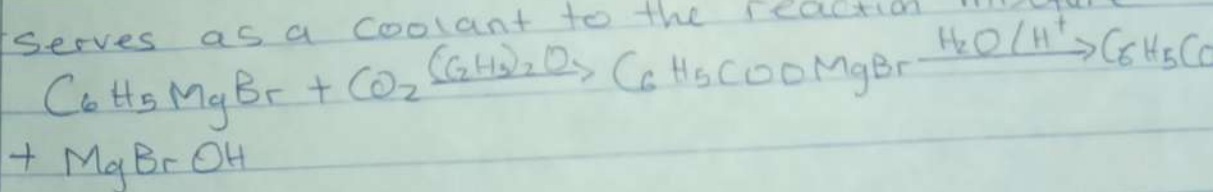 serves as a coolant to the reaction
C6H5MgBr + CO2 (C2H5)2O> C6H5COOMgBr H2O/H+> C6H5CO
+ MgBrOH